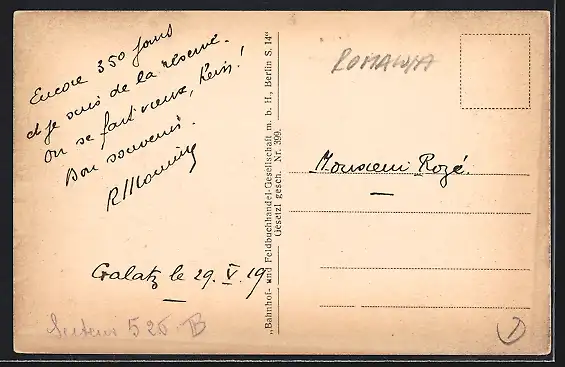 Encore 350 jours
et je suis de la réserve.
On se fait vieux, hein!
Bon souvenir.
Galatz le 29. V. 19
Secteur 525 B
"Bahnhof- und Feldbuchhandel-Gesellschaft m. b. H., Berlin S. 14"
Gesetzl gesch. Nr. 399.
ROMANIA
Monsieur Rozé.